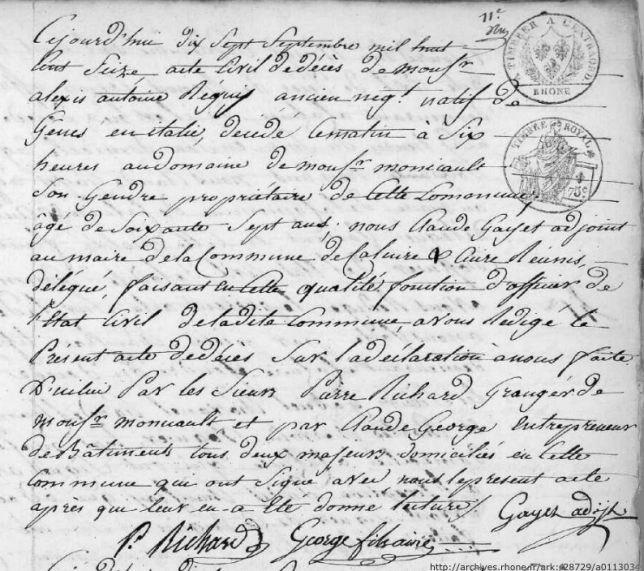 11e
Cejourd'hui dix Sept Septembre mil huit
Cent Seize, acte Civil dedécès de monsr
alexis antoine Requis ancien negt. natif de
Genes en italie, décédé Cematin à Six
heures audomaine de monsr moniault
Son Gendre propriétaire de Cette Commune,
âgé de Soixante Sept ans; nous Claude Gayet adjoint
au maire delaCommune deCaluire & Cuire Reunis,
délégué, faisant en Cette qualité fonction d'officier de
l'Etat Civil deladite Commune, avons Rédigé le
Présent acte dedécès Sur ladéclaration anous faite
Par les Sieurs Pierre Richard Granger de
monsr moniault et par Claude George Entrepreneur
deBâtiments tous deux majeurs domiciliés en Cette
Commune qui ont Signé avec nous leprésent acte
après que leur en a été donné lecture / Gayet adjt
P. Richard George
TIMBRER A L'EXTRAORD.
RHONE
TIMBRE ROYAL
75c
http://archives.rhone.fr/ark:/28729/a0113034